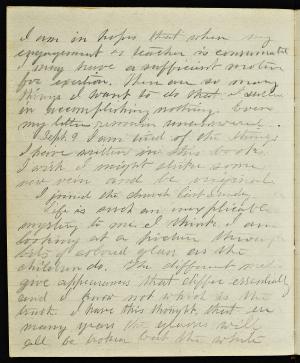 I am in hopes that when my
engagement as teacher is consummated
I may have a sufficient motive
for exertion. There are so many
things I want to do that I succeed
in accomplishing nothing. Even
my letters remain unanswered.
Sept. 9. I am tired of the things
I have written in this book.
I wish I might strike some
new vein and be original.
I joined the church last Sunday.
Life is such an inexplicable
mystery to me. I think I am
looking at a picture through
bits of colored glass as the
children do. The different
give appearances that differ essentially
and I know not which is the
truth. I have this thought that in
many years the glasses will
all be broken but the white